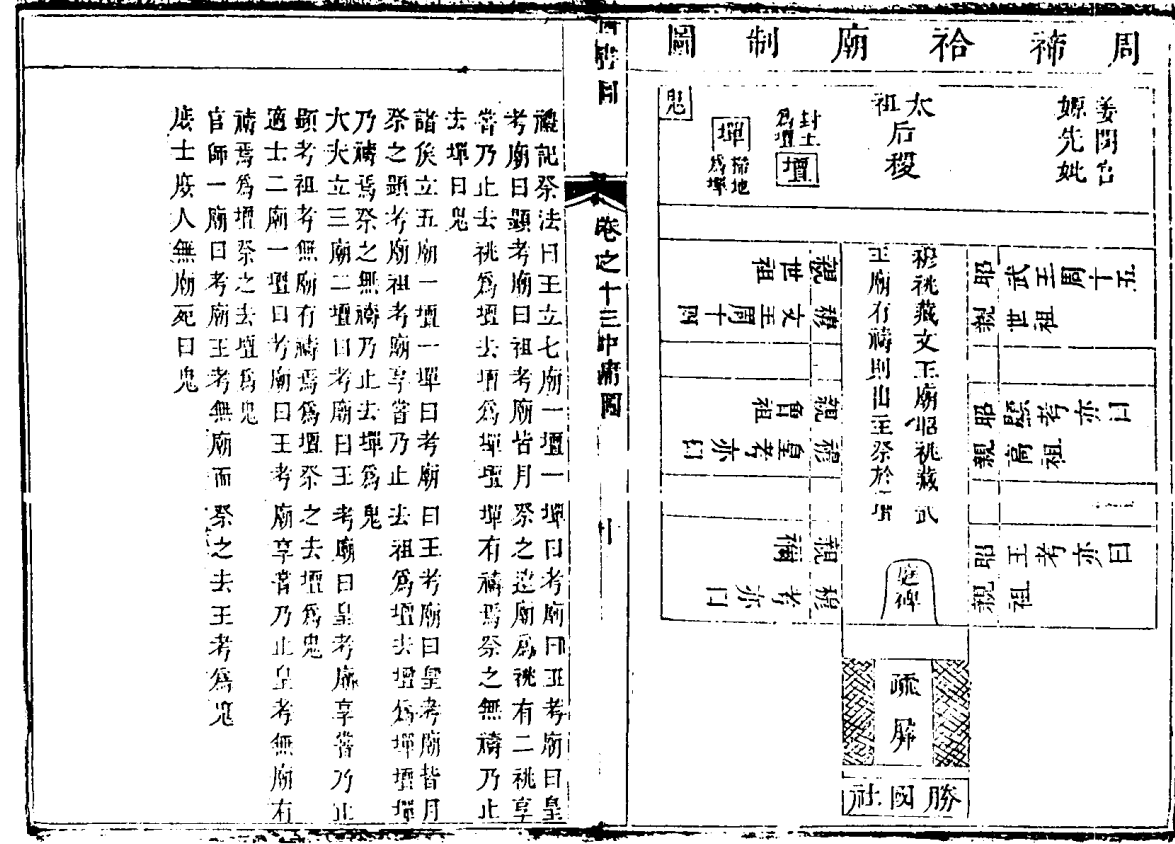 周禘祫廟制圖
姜閟宮
嫄先妣
太
祖
后稷
封土
爲壇
壇
墠
掃地
爲墠
鬼
昭 武王周十五
親 世祖
穆 文王周十四
親 世祖
昭 顯考亦曰
親 高祖
穆 皇考亦曰
親 曾祖
昭 王考亦曰
親 祖
穆 考亦曰
親 禰
穆祧藏文王廟昭祧藏武
王廟有禱則出主祭於壇
庭碑
疏屏
勝國社
卷之十三中庸圖
禮記祭法曰王立七廟一壇一墠曰考廟曰王考廟曰皇
考廟曰顯考廟曰祖考廟皆月祭之遠廟爲祧有二祧享
嘗乃止去祧爲壇去壇爲墠壇墠有禱焉祭之無禱乃止
去墠曰鬼
諸侯立五廟一壇一墠曰考廟曰王考廟曰皇考廟皆月
祭之顯考廟祖考廟享嘗乃止去祖爲壇去壇爲墠壇墠
乃禱焉祭之無禱乃止去墠爲鬼
大夫立三廟二壇曰考廟曰王考廟曰皇考廟享嘗乃止
顯考祖考無廟有禱焉爲壇祭之去壇爲鬼
適士二廟一壇曰考廟曰王考廟享嘗乃止皇考無廟有
禱焉爲壇祭之去壇爲鬼
官師一廟曰考廟王考無廟而祭之去王考爲鬼
庶士庶人無廟死曰鬼